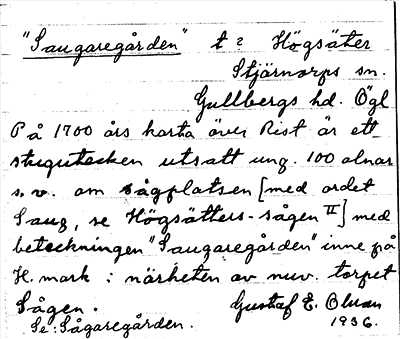 "Saugaregården" t ? Högsäter
Stjärnorps sn.
Gullbergs hd. Ögl
På 1700 års karta över Rist är ett
stugutecken utsatt ung. 100 alnar
s.v. om sågplatsen [med ordet
Saug, se Högsätters-sågen II] med
beteckningen "Saugaregården" inne på
H. mark i närheten av nuv. torpet
Sågen. Gustaf E. Olsson
Se: Sågaregården. 1936.